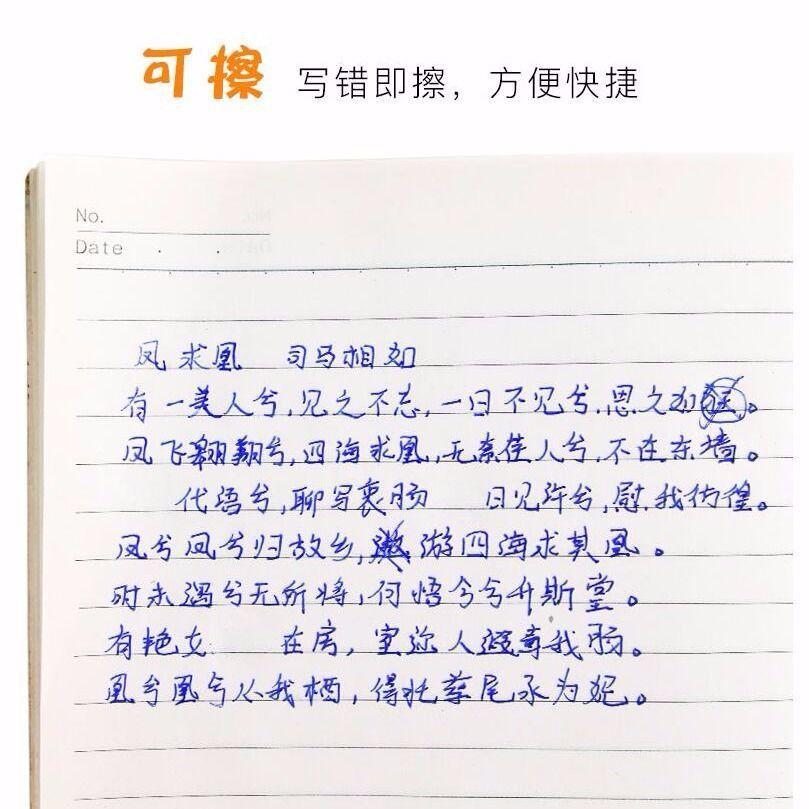 可擦 写错即擦，方便快捷
No.
Date
凤求凰 司马相如
有一美人兮,见之不忘,一日不见兮,思之如。
凤飞翱翔兮,四海求凰,无奈佳人兮,不在东墙。
代语兮,聊写衷肠 日见许兮,慰我彷徨。
凤兮凤兮归故乡,游四海求其凰。
时未遇兮无所将,何悟今兮升斯堂。
有艳女 在房,室迩人遐毒我肠。
凰兮凰兮从我栖,得托孳尾永为妃。